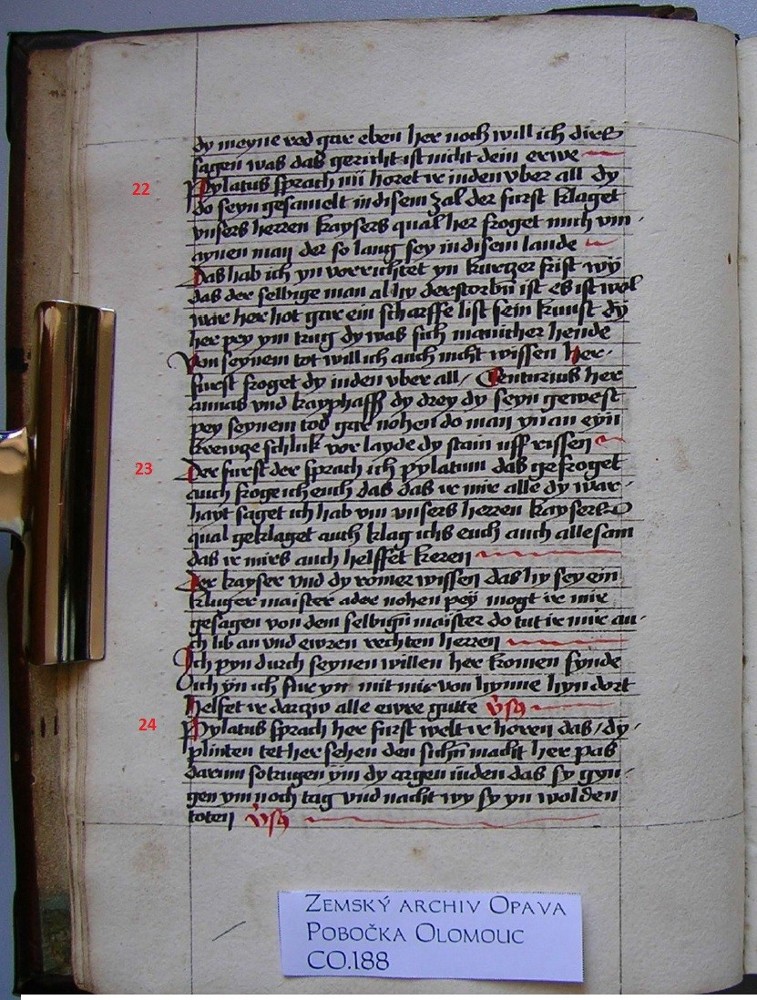 dy meyne red gar eben her noch will ich dirs
sagen was das gericht ist nicht dein erwe
22
Pylatus sprach nu horet ir iuden vber all dy
do seyn gesamelt in disem zal der furst klaget
vnsers herren kaysers qual her froget mich vm
aynen man der so lang sey in disem lande
Das hab ich yn vorrichtet yn kurtzer frist wy
das der selbige man al hy derstorbn ist es ist wol
war her hot gar ein scharffe list sein kunst dy
her pey ym trug dy was sich manicher hende
Von seynem tot will ich auch nicht wissen her
furst froget dy iuden vber all / Centurius her
annas vnd kayphass dy drey dy seyn gewest
pey seynem tod gar nohen do man yn an eyn
krewtze schluk vor layde dy stain uff rissen
23
Der furst der sprach ich pylatum das gefroget
auch froge ich euch das das ir mir alle dy war
hayt saget ich hab vm vnsers herren kaysers
qual geklaget auch klag ichs euch auch alle sam
das ir mirs auch helffet keren
Der kayser vnd dy romer wissen das hy sey ein
kluger maister ader nohen pey mogt ir mir
gesagen von dem selbign maister do tut ir mir au
ch lib an vnd ewren rechten herren
Ich pyn durch seynen willen her komen fynde
ich yn ich fur yn mit mir von hynne hyn dort
helfet ir dartzw alle ewre gutte vsq
24
Pylatus sprach her furst welt ir horen das / dy
plinten tet her sehen den sichn macht her pas
darum so trugen ym dy argen iuden das sy gyn
gen vm noch tag vnd nacht wy sy yn wolden
toten vsq
Zemský archiv Opava
Pobočka Olomouc
CO.188